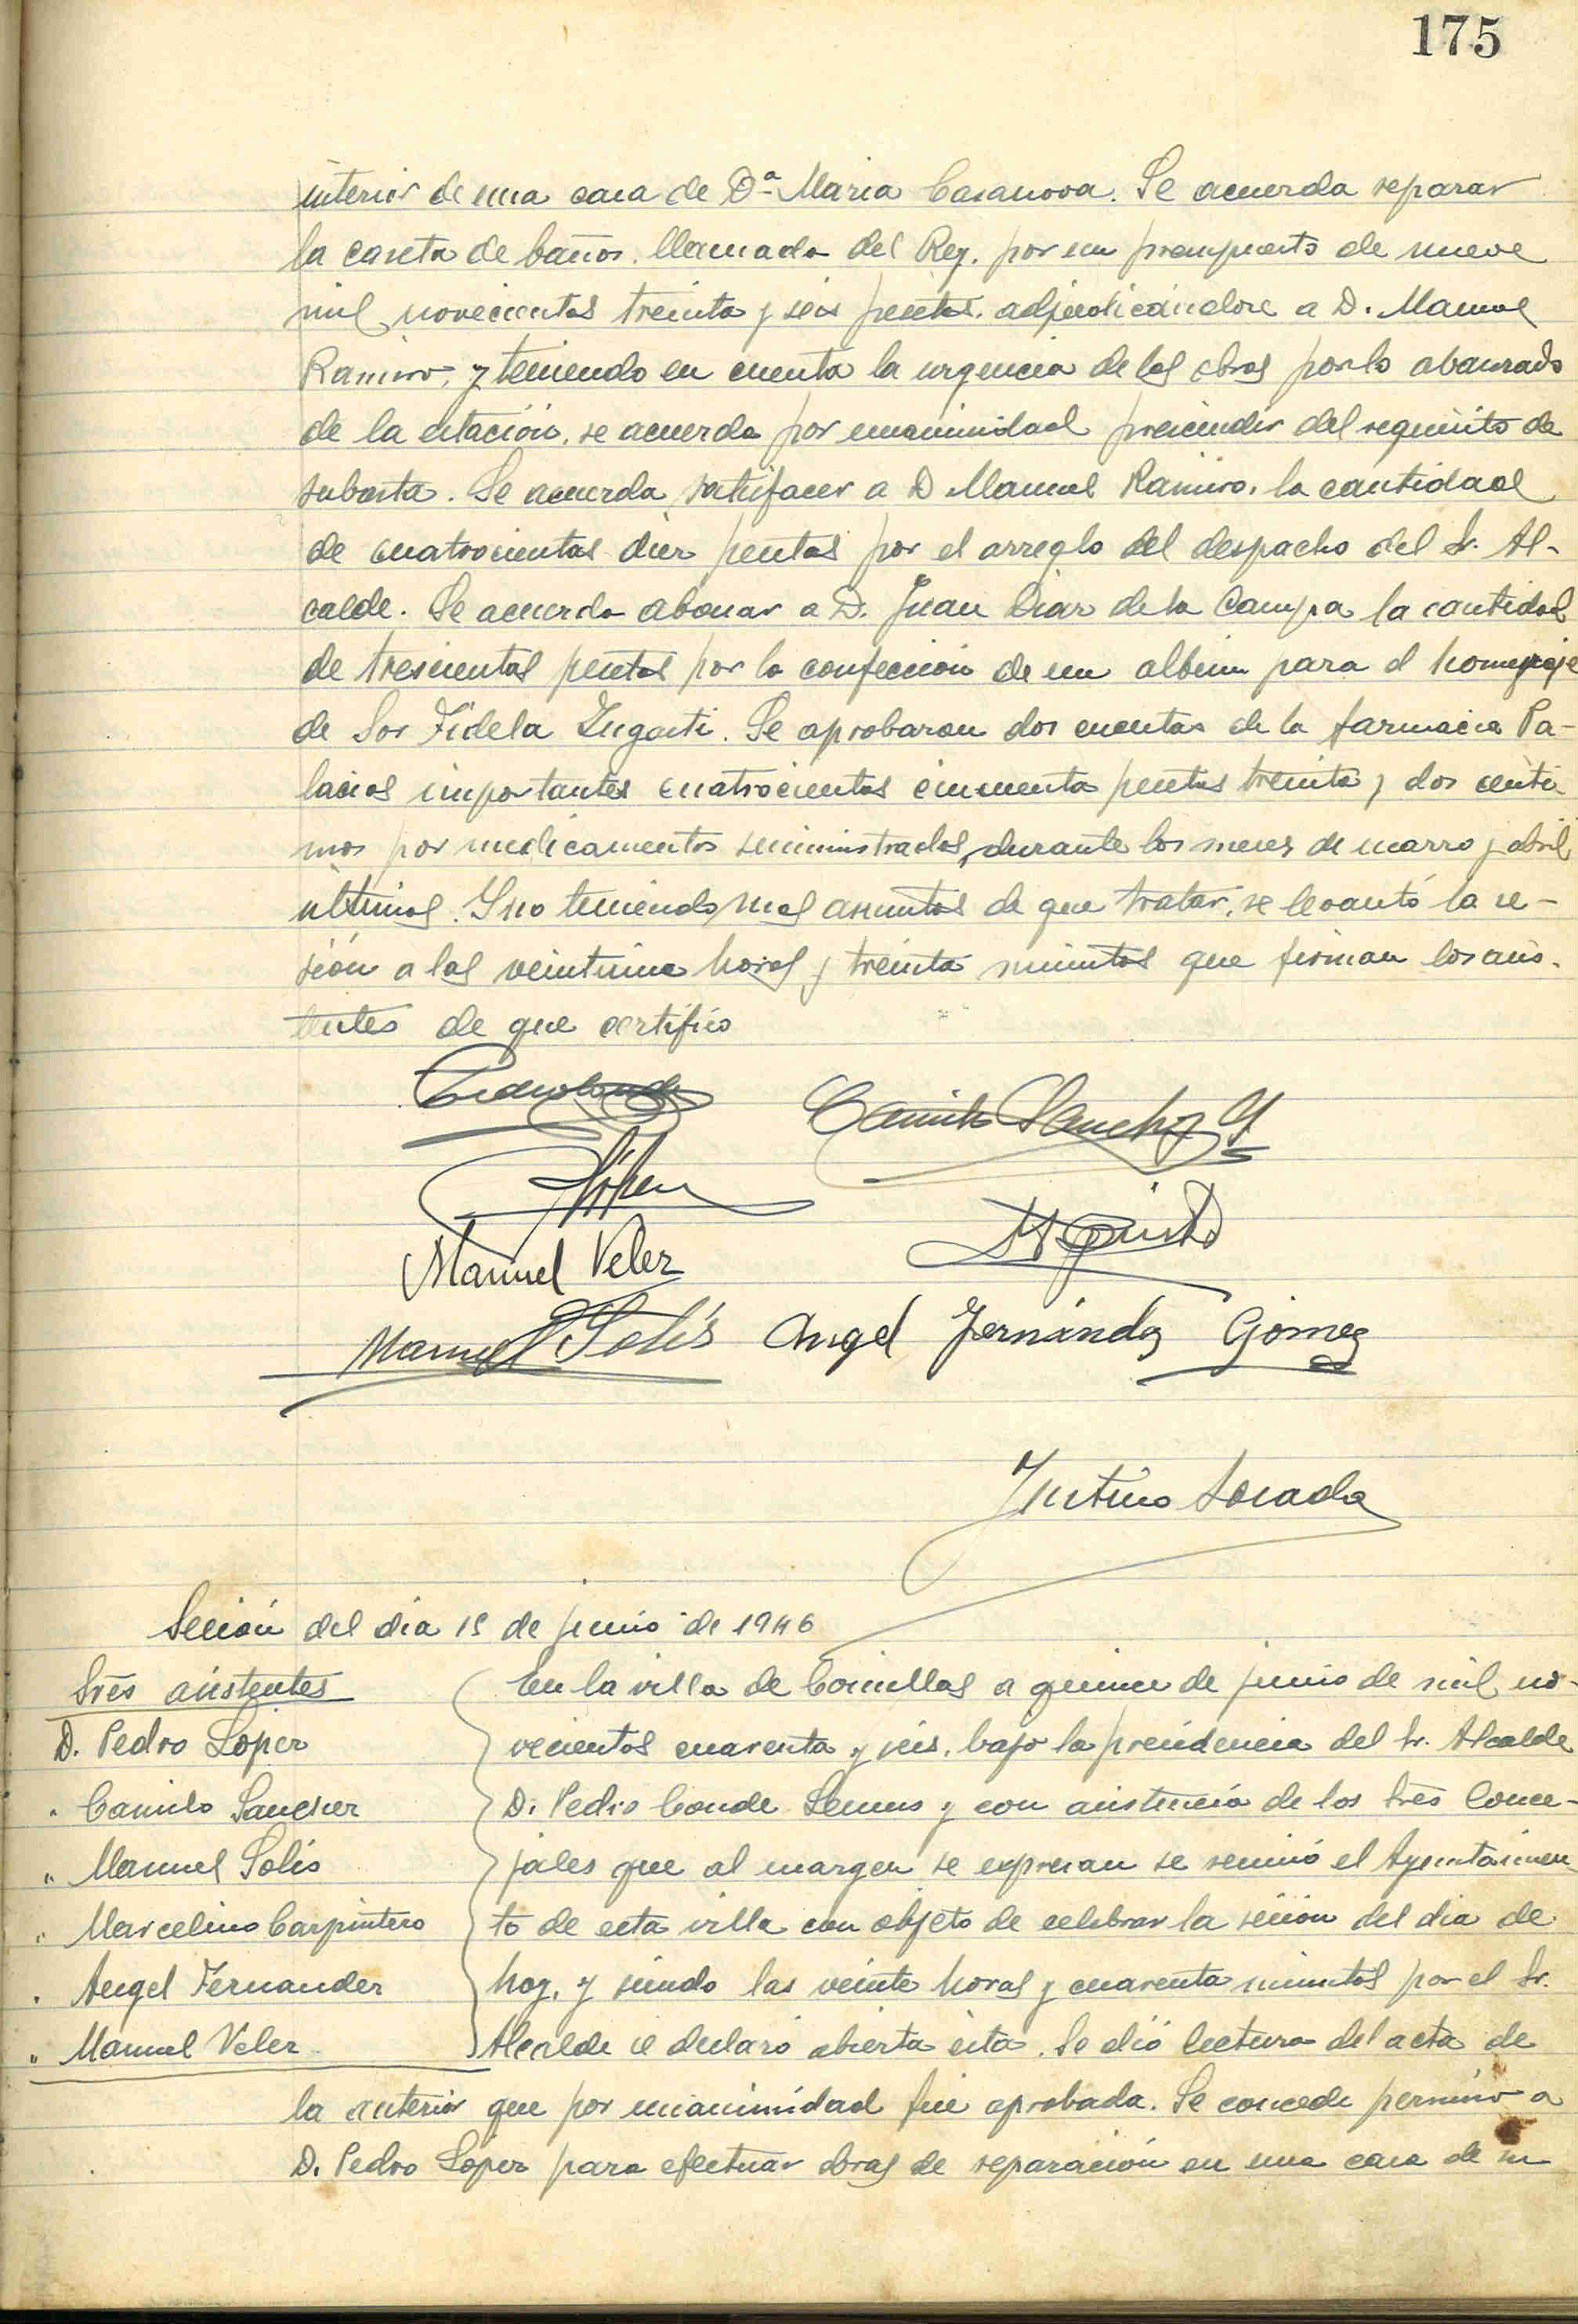 175
interior de una casa de Dª Maria Casanova. Se acuerda reparar
la caseta de baños. llamada del Rey. por un presupuesto de nueve
mil novecientas treinta y seis pesetas. adjudicándose a D. Manuel
Ramiro, y teniendo en cuenta la urgencia de las obras por lo abanzado
de la estación, se acuerda por unanimidad prescindir del requisito de
subasta. Se acuerda satisfacer a D Manuel Ramiro, la cantidad
de cuatrocientas diez pesetas por el arreglo del despacho del Sr. Al-
calde. Se acuerda abonar a D. Juan Diaz de la Campa la cantidad
de trescientas pesetas por la confección de un album para el homenaje
de Sor Fidela Zugasti. Se aprobaron dos cuentas de la farmacia Pa-
lacios importantes cuatrocientas cincuenta pesetas treinta y dos centi-
mos por medicamentos suministrados, durante los meses de marzo y abril
ultimos. Y no teniendo mas asuntos de que tratar, se levantó la se-
sión a las veintiuna horas y treinta minutos que firman los asis-
tentes de que certifico
Pedro Conde
Camilo Sanchez G
López
Manuel Velez
Manuel Solís Angel Fernández Gómez
Justino Losada
Sesión del dia 15 de junio de 1946
Sres asistentes
D. Pedro López
" Camilo Sanchez
" Manuel Solis
" Marcelino Carpintero
" Angel Fernandez
" Manuel Velez
En la villa de Comillas a quince de junio de mil no-
vecientos cuarenta y seis, bajo la presidencia del Sr. Alcalde
D. Pedro Conde Lemus y con asistencia de los Sres Conce-
jales que al margen se expresan se reunió el Ayuntamien-
to de esta villa con objeto de celebrar la sesion del dia de
hoy, y siendo las veinte horas y cuarenta minutos por el Sr.
Alcalde se declaró abierta ésta. Se dió lectura del acta de
la anterior que por unanimidad fue aprobada. Se concede permiso a
D. Pedro López para efectuar obras de reparación en una casa de su